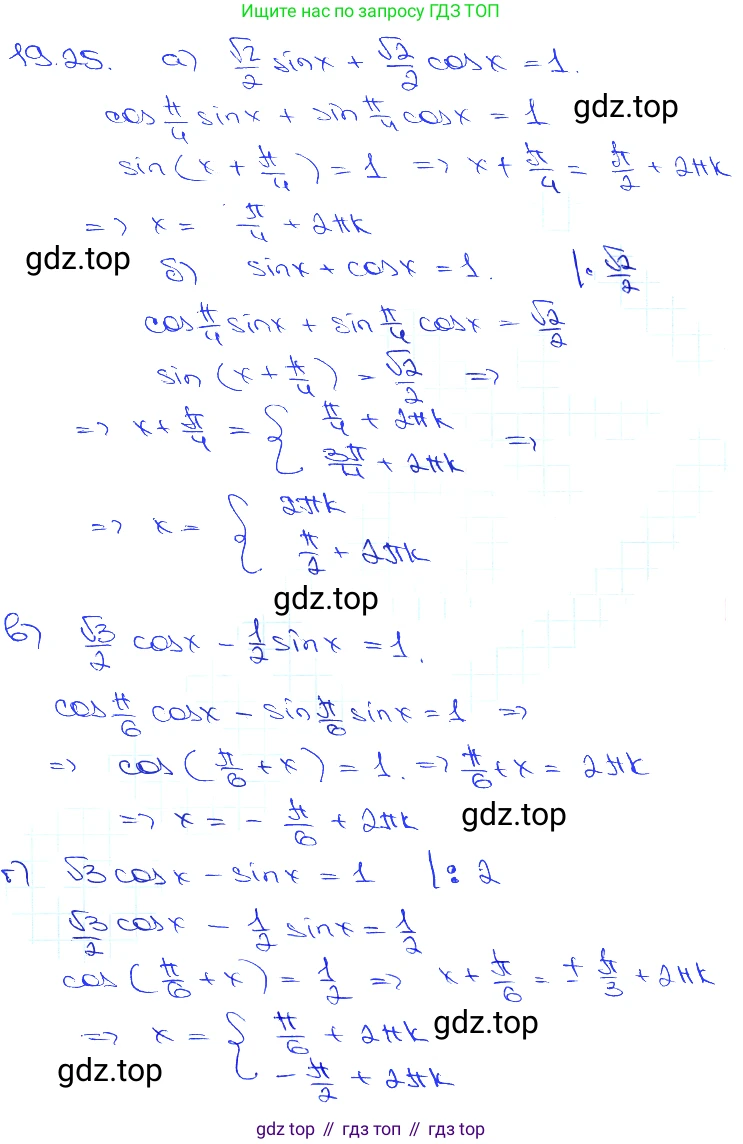 Ищите нас по запросу ГДЗ ТОП
19.25. а) √2/2 sinx + √2/2 cosx = 1.
cos π/4 sinx + sin π/4 cosx = 1
gdz.top
sin(x + π/4) = 1 => x + π/4 = π/2 + 2πk
=> x = π/4 + 2πk
gdz.top
б) sinx + cosx = 1. |: √2/2
cos π/4 sinx + sin π/4 cosx = √2/2
sin (x + π/4) = √2/2 =>
=> x + π/4 = { π/4 + 2πk
3π/4 + 2πk =>
=> x = { 2πk
π/2 + 2πk
gdz.top
в) √3/2 cosx - 1/2 sinx = 1.
cos π/6 cosx - sin π/6 sinx = 1 =>
=> cos (π/6 + x) = 1. => π/6 + x = 2πk
=> x = - π/6 + 2πk
gdz.top
г) √3 cosx - sinx = 1 |: 2
√3/2 cosx - 1/2 sinx = 1/2
cos (π/6 + x) = 1/2 => x + π/6 = ± π/3 + 2πk
=> x = { π/6 + 2πk
gdz.top
- π/2 + 2πk
gdz.top
gdz top // гдз топ // gdz.top